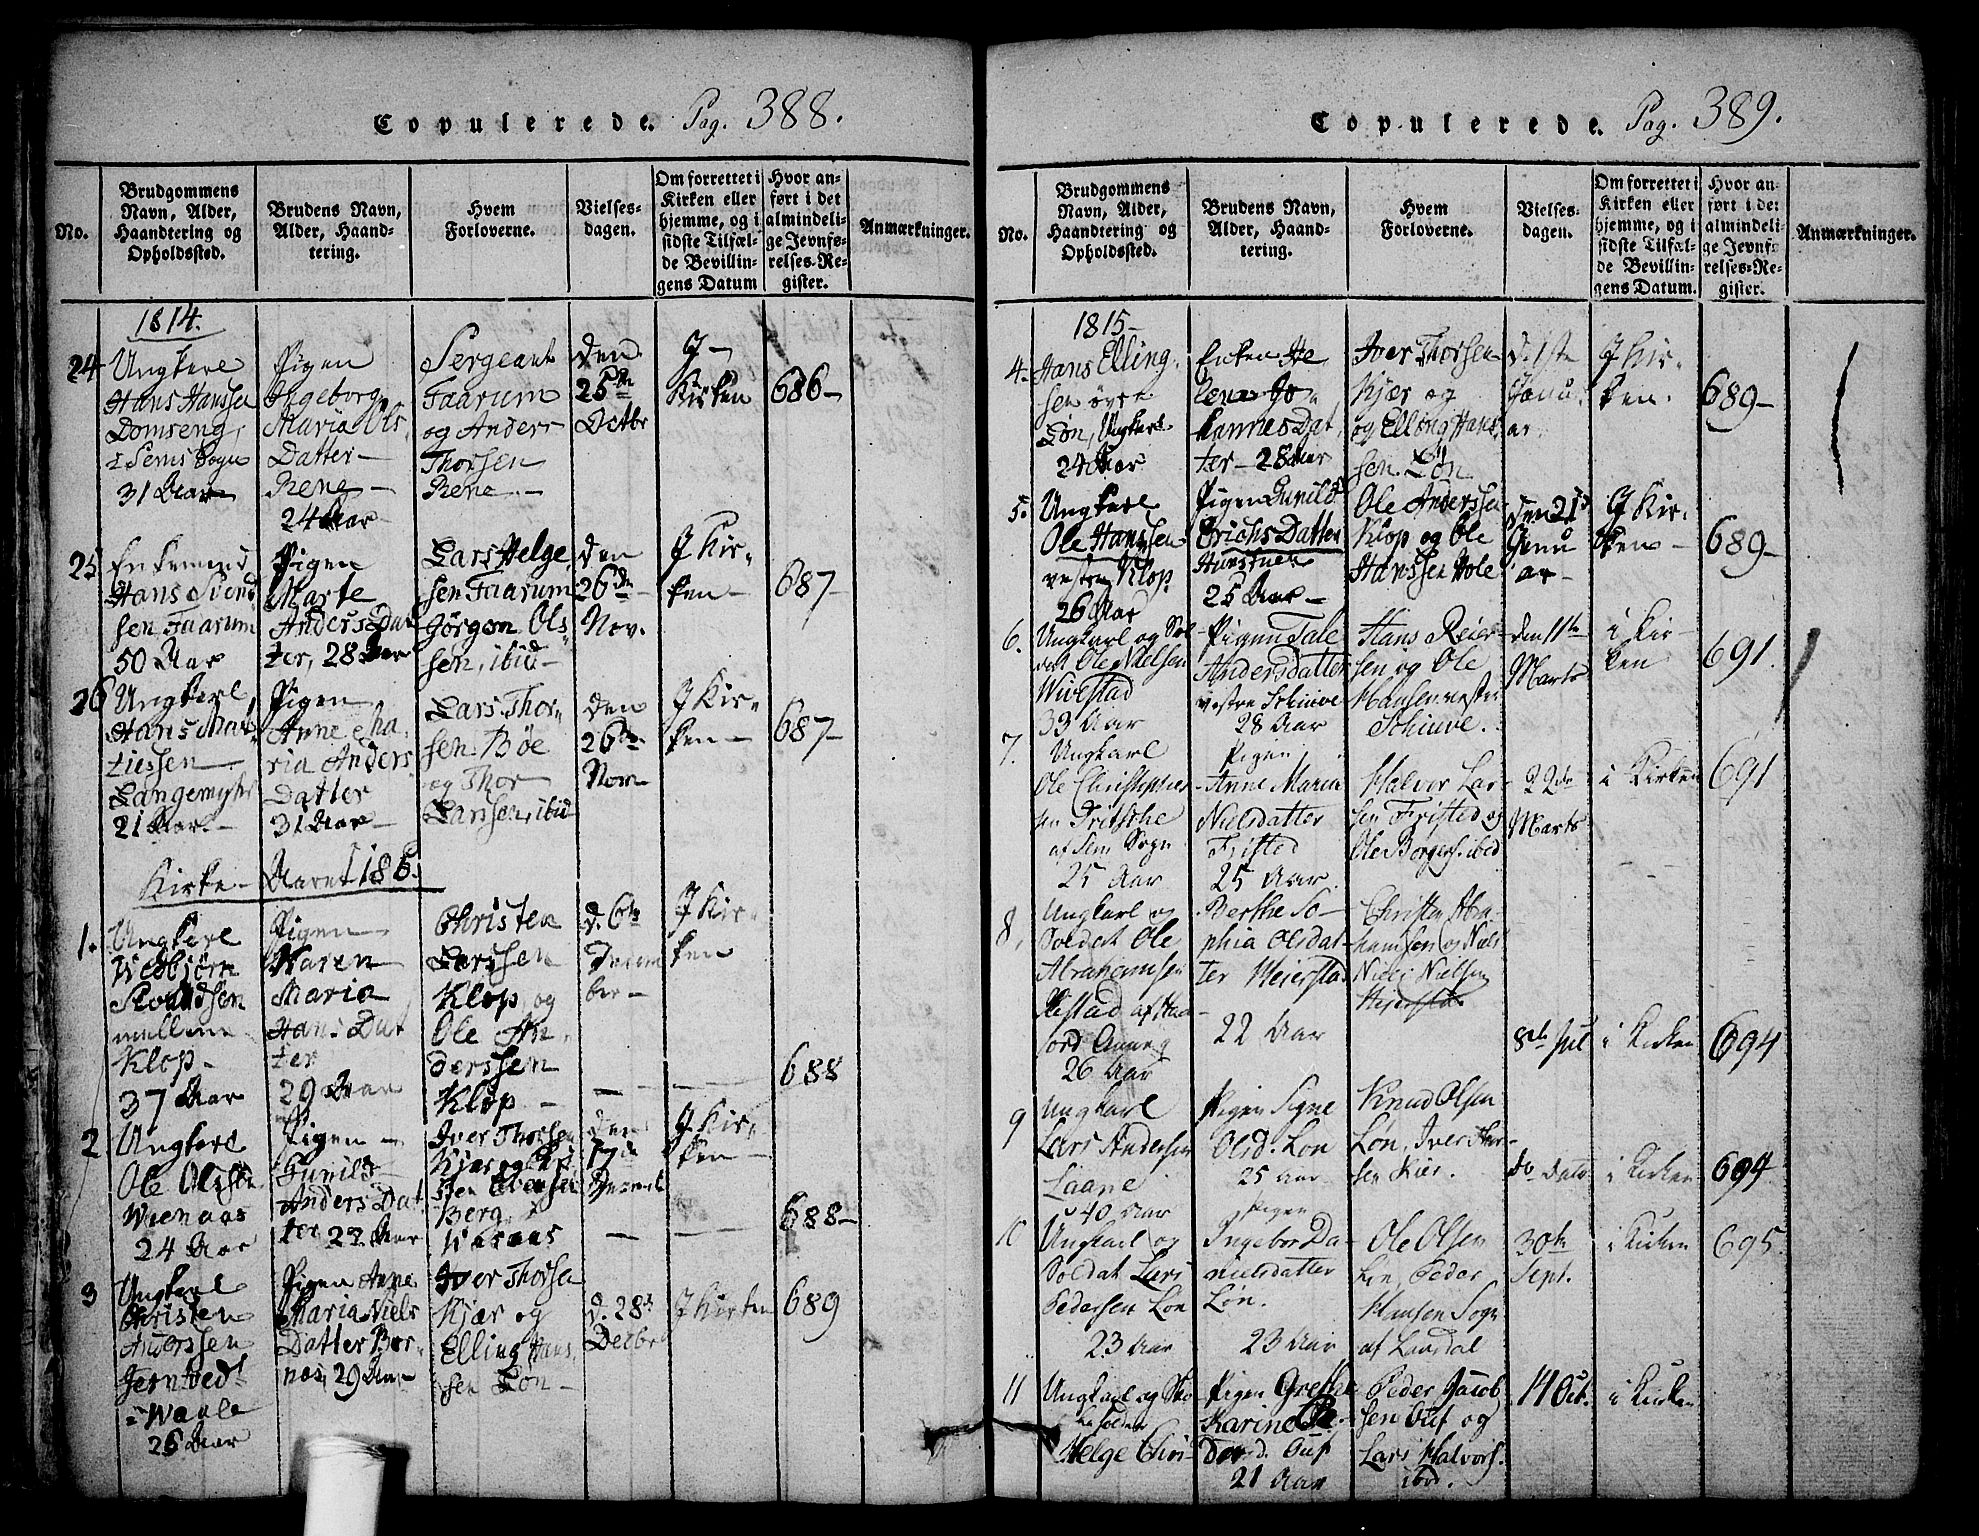 Copulerede. Pag. 388.
No.
Brudgommens Navn, Alder, Haandtering og Opholdssted.
Brudens Navn, Alder, Haandtering.
Hvem Forloverne.
Vielses-dagen.
Om forrettet i Kirken eller hjemme, og i sidste Tilfælde Bevillingens Datum
Hvor anført i det almindelige Jevnførelses-Register.
Anmærkninger.
1814.
24
Ungkarl
Hans Hanssen
Domseng,
i Sems Sogn
31 Aar
Pigen
Ingeborg
Maria Ols
Datter
Rene
24 Aar
Sergeant
Faarum
og Anders
Thorsen
Rene
den
25de
Decbr
I
Kirken
686
25
Enkemand
Hans Svend
sen Faarum
50 Aar
Pigen
Marte
Anders Dat
ter, 28 Aar
Lars Helge
sen Faarum
Jørgen Ols
sen, ibid
den
26de
Nov.
I Kir-
ken
687
26
Ungkarl,
Hans Mat
tiessen
Langemyhr
21 Aar
Pigen
Anne Cha
ria Anders
Datter
31 Aar
Lars Thor
sen Bøe
og Thor
Larssen, ibid
den
26de
Nov
I Kir-
ken
687
Kirke-Aaret 1815.
1.
Ungkarl
Vebjørn
mellem
Klop
37 Aar
Pigen
Karen
Maria
Hans Dat
ter
29 Aar
Christen
Larssen
Klop, og
Ole An
derssen
Klop
d. 6te
Decem
ber
I Kir-
ken
688
2
Ungkarl
Ole Olsen
Wienaas
24 Aar
Pigen
Gunild
Anders Dat
ter 22 Aar
Iver Thorsen
Kjær og
Berg
den
17de
I Kir-
ken
688
3
Ungkarl
Christen
Anderssen
Jerntvedt
i Waale
26 Aar
Pigen Anne
Maria Niels
Datter Bor
nes, 29 Aar
Iver Thorsen
Kjær og
Elling Hans
sen Løn
d. 28d
Decbr
I Kirken
689
Copulerede. Pag. 389.
No.
Brudgommens Navn, Alder, Haandtering og Opholdssted.
Brudens Navn, Alder, Haandtering.
Hvem Forloverne.
Vielses-dagen.
Om forrettet i Kirken eller hjemme, og i sidste Tilfælde Bevillingens Datum.
Hvor anført i det almindelige Jevnførelses-Register.
Anmærkninger.
1815
4.
Hans Elling
sen øvre
Løn, Ungkarl
24 Aar
Enken He
lene Jo
hannes Dat
ter 28 Aar
Iver Thorsen
Kjær og
og Elling Hans
sen Løn
d. 1ste
Janu
ar
I Kir-
ken
689
5.
Ungkarl
Ole Hanssen
vestre Klop
26 Aar
Pigen Gunild
Erichs Datter
25 Aar
Ole Anderssen
Klop og Ole
Hanssen Hole
den 21d
Janu
ar
I Kir-
ken
689
6.
Ungkarl og Sol
dat Ole Nielsen
Wivestad
33 Aar
Pigen Tale
Andersdatter
vestre Schiuve
28 Aar
Hans Reier
sen og Ole
Hansen vestre
Schiuve.
den 11te
Marts
i Kir-
ken
691.
7.
Ungkarl
Ole Christopher
sen
af Sem Sogn
25 Aar
Pigen
Anne Maria
Nielsdatter
Fristed
25 Aar
Halvor Lar
sen Fristed og
Ole Borgers. ibid
22de
Marts
i Kirken
691
8.
Ungkarl og
Soldat Ole
Abrahamsen
26 Aar
Berthe So
phia Olsdat
ter Meierstad
22 Aar
Christen Abra
hamsen og Niels
Niels Nielsen
8de Jul
i Kirken
694
9
Ungkarl
Lars Andersen
Laane
40 Aar
Pigen Signe
Olsd. Løn
25 Aar
Knud Olsen
Løn, Iver Thor
sen Kier.
do Dato
i Kirken
694
10
Ungkarl og
Soldat Lars
Pedersen Løn
23 Aar
Pigen
Ingebor Da
nielsdatter
Løn.
23 Aar
Ole Olsen
Løn, Peder
Hansen Sogn
af Laurdal
30te
Sept.
i Kirken
695.
11
Ungkarl og
Helge Chri
Pigen Grethe
Karine Pe
dersd. Auf
21 Aar
Peder Jacob
sen Auf og
Lars Halvors.
ibid.
14 Oct.
i Kirken